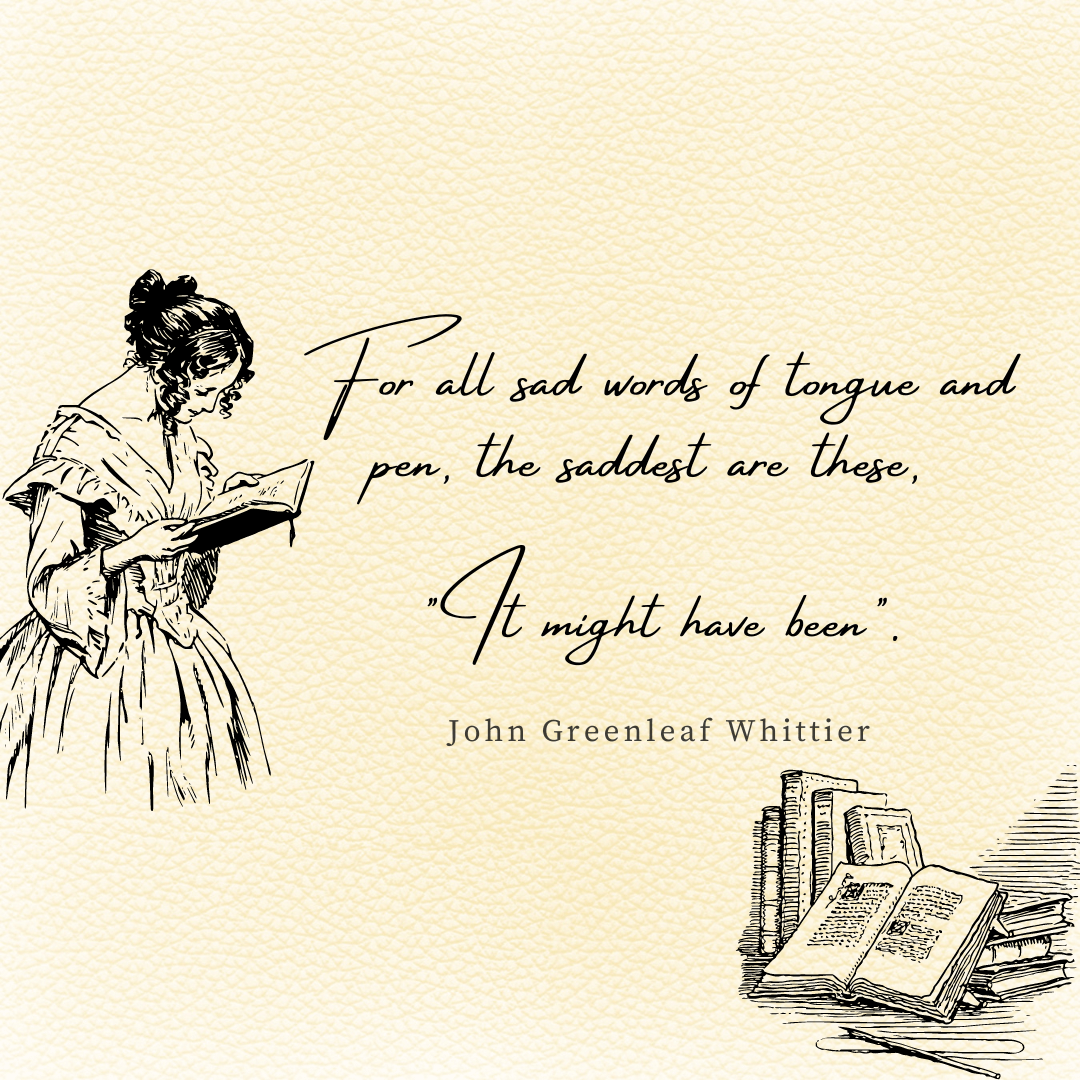 For all sad words of tongue and
pen, the saddest are these,
"It might have been".
John Greenleaf Whittier